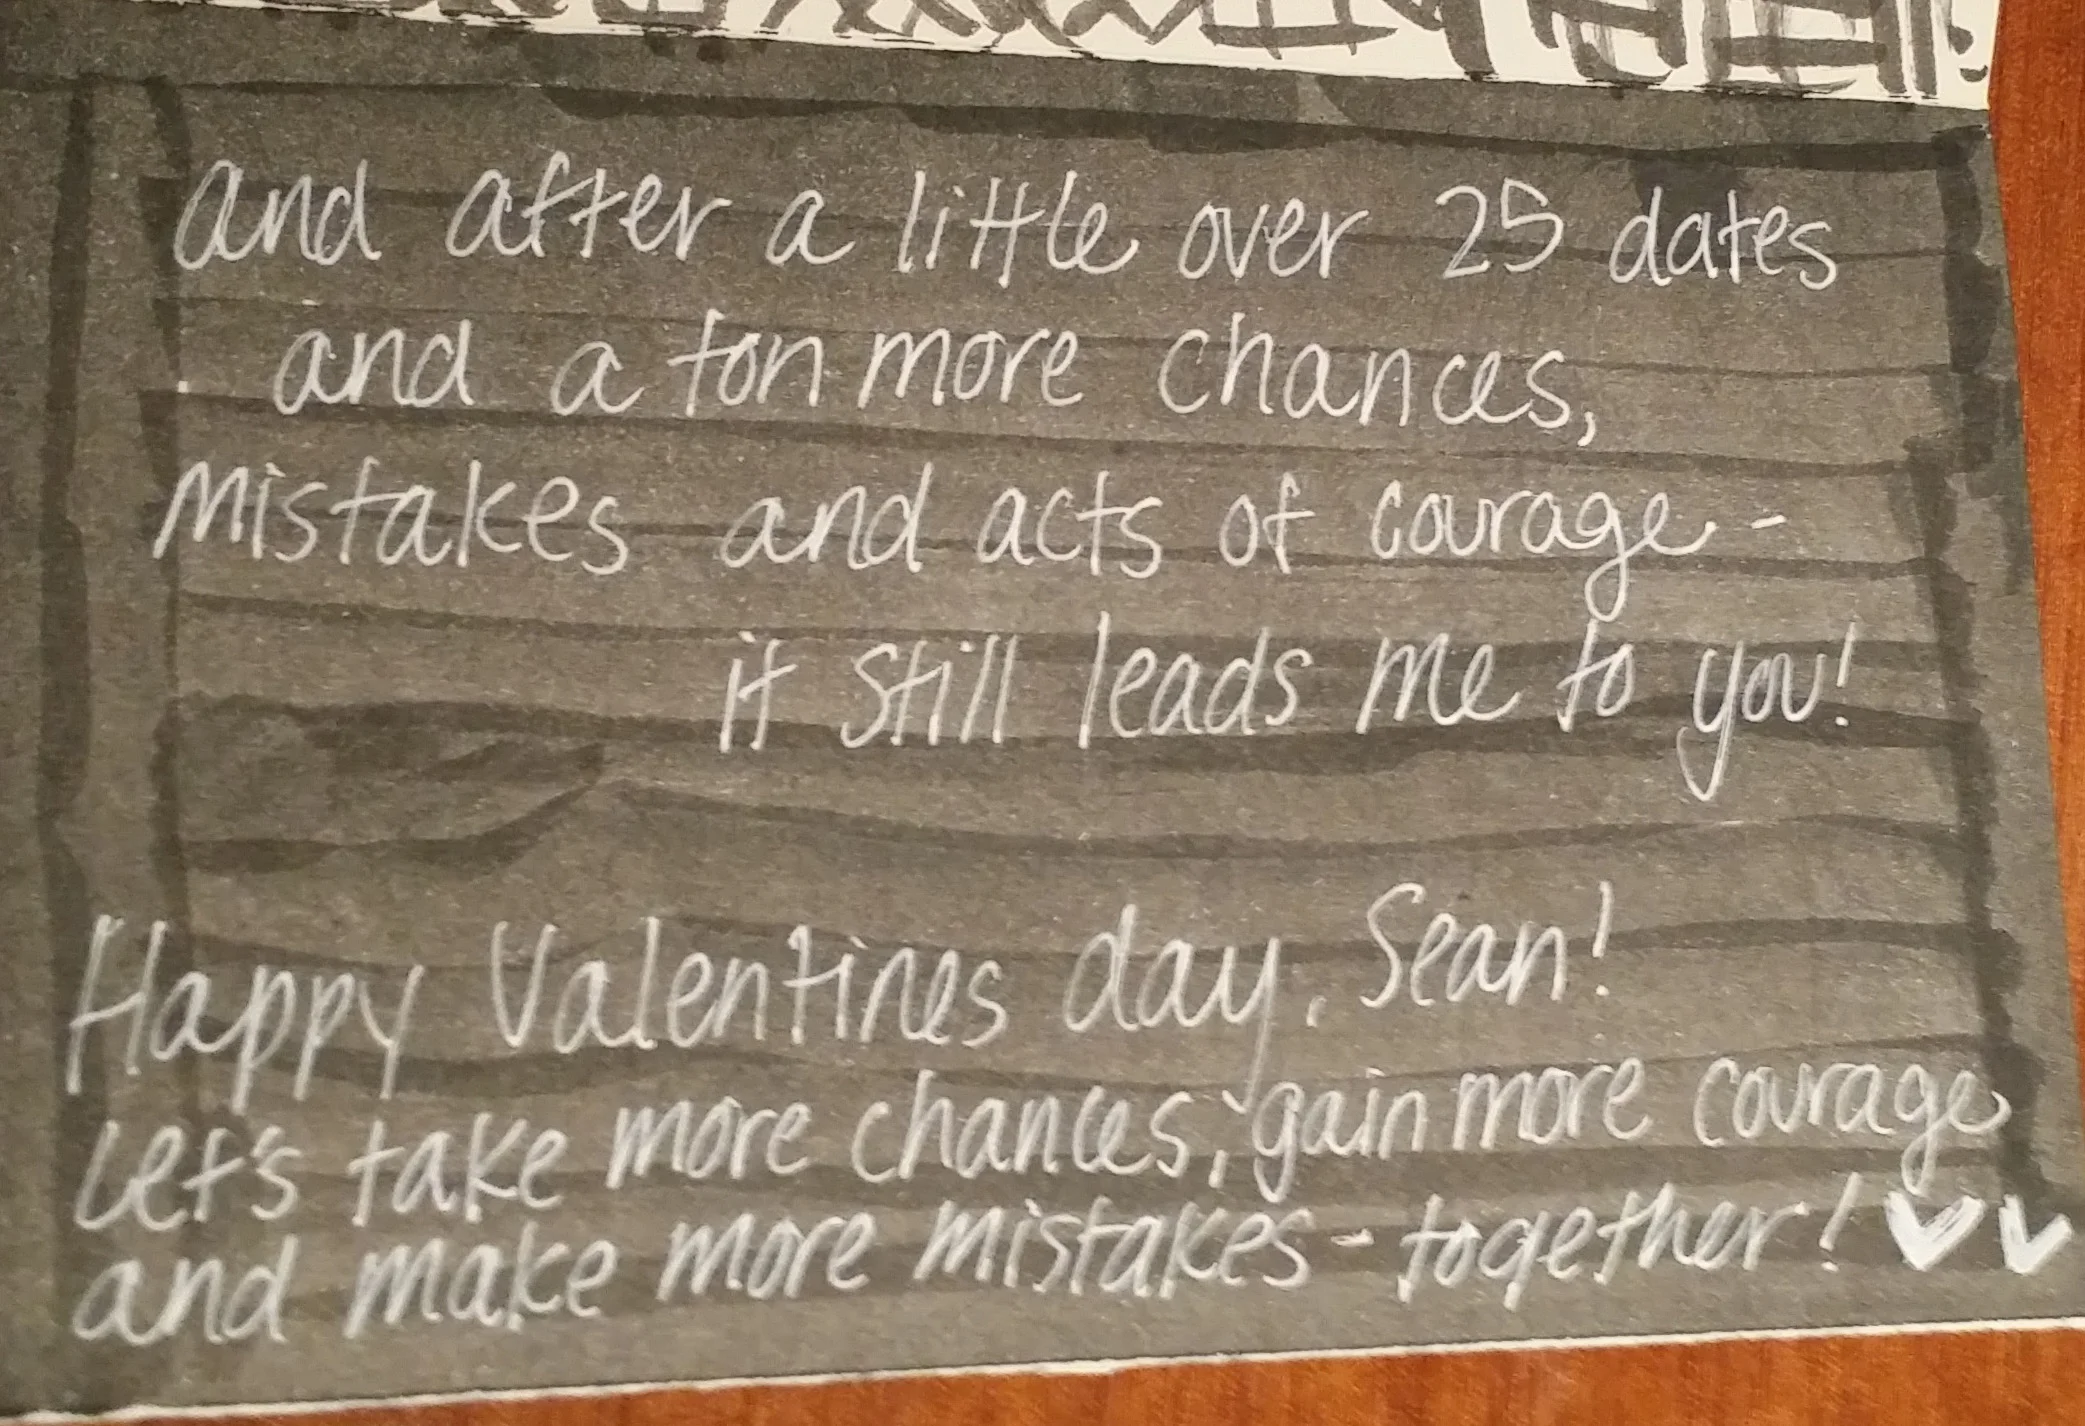 and after a little over 25 dates
and a ton more chances,
mistakes and acts of courage -
it still leads me to you!
Happy Valentines day, Sean!
Let's take more chances, gain more courage
and make more mistakes - together!